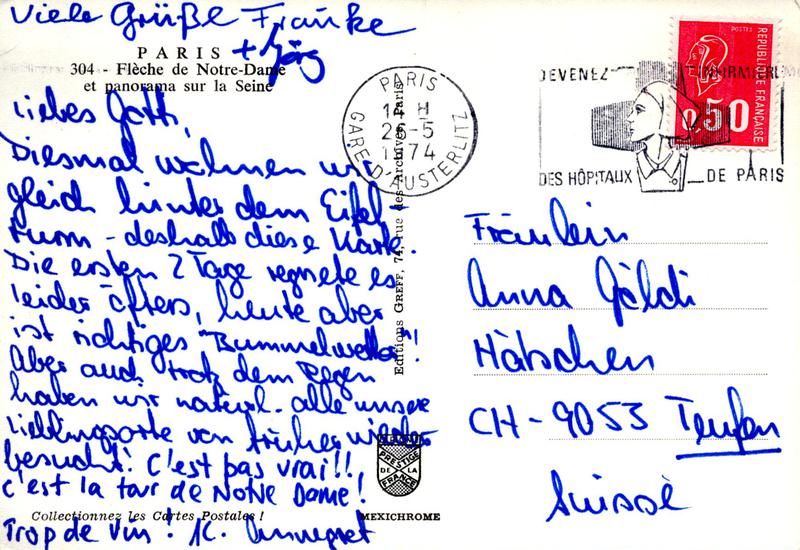 Viele Grüße Frauke
+ Jörg
PARIS
304 - Flèche de Notre-Dame
et panorama sur la Seine
Liebes Gotti,
Diesmal wohnen wir
gleich hinter dem Eifel-
turm - deshalb diese Karte.
Die ersten 2 Tage regnete es
leider öfters, heute aber
ist richtiges "Bummelwetter"!
Aber auch trotz dem Regen
haben wir natürl. alle unsere
Lieblingsorte von früher wieder
besucht! C'est pas vrai!!
c'est la tour de Notre Dame!
Trop de Vin! K. Annegret
Collectionnez les Cartes Postales !
Editions GREFF, 74, rue des Archives, Paris
PRESTIGE
DE LA
FRANCE
MEXICHROME
PARIS
-5
1974
GARE D'AUSTERLITZ
DEVENEZ
DES HÔPITAUX DE PARIS
POSTES
REPUBLIQUE FRANÇAISE
0,50
Fräulein
Anna Göldi
Hätschen
CH-9053 Teufen
Suisse